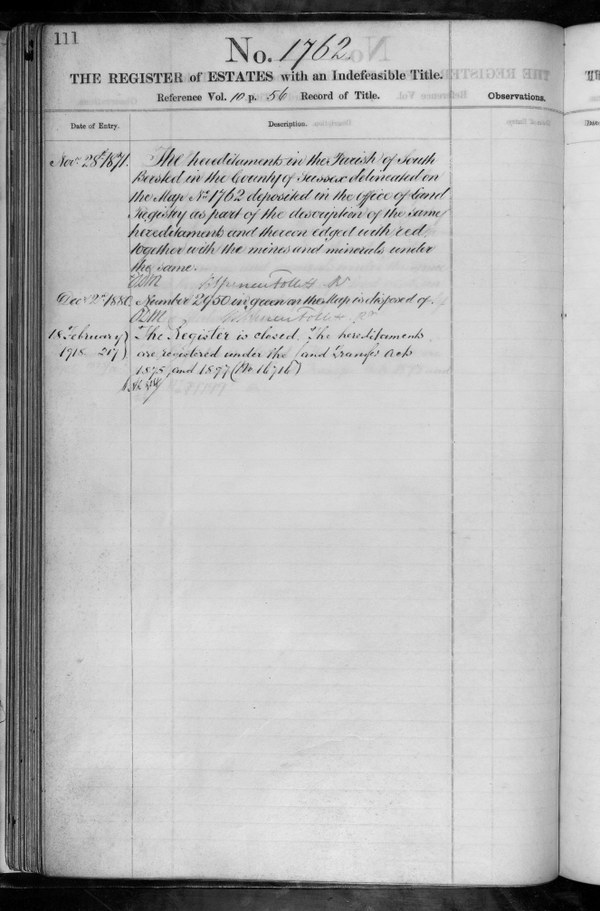 111
No. 1762
THE REGISTER of ESTATES with an Indefeasible Title.
Reference Vol. 10 p. 56 Record of Title.
Observations.
Date of Entry.
Description.
Novr. 28th 1871.
The hereditaments in the Parish of South
Bersted in the County of Sussex delineated on
the Map No. 1762 deposited in the office of Land
Registry as part of the description of the same
hereditaments and thereon edged with red
together with the mines and minerals under
the same.
R
Decr 2nd 1880.
Number 2950 in green on the Map is disposed of.
18 February
1918
The Register is closed. The hereditaments
are registered under the Land Transfer Acts
1875 and 1897 (No. 16716)